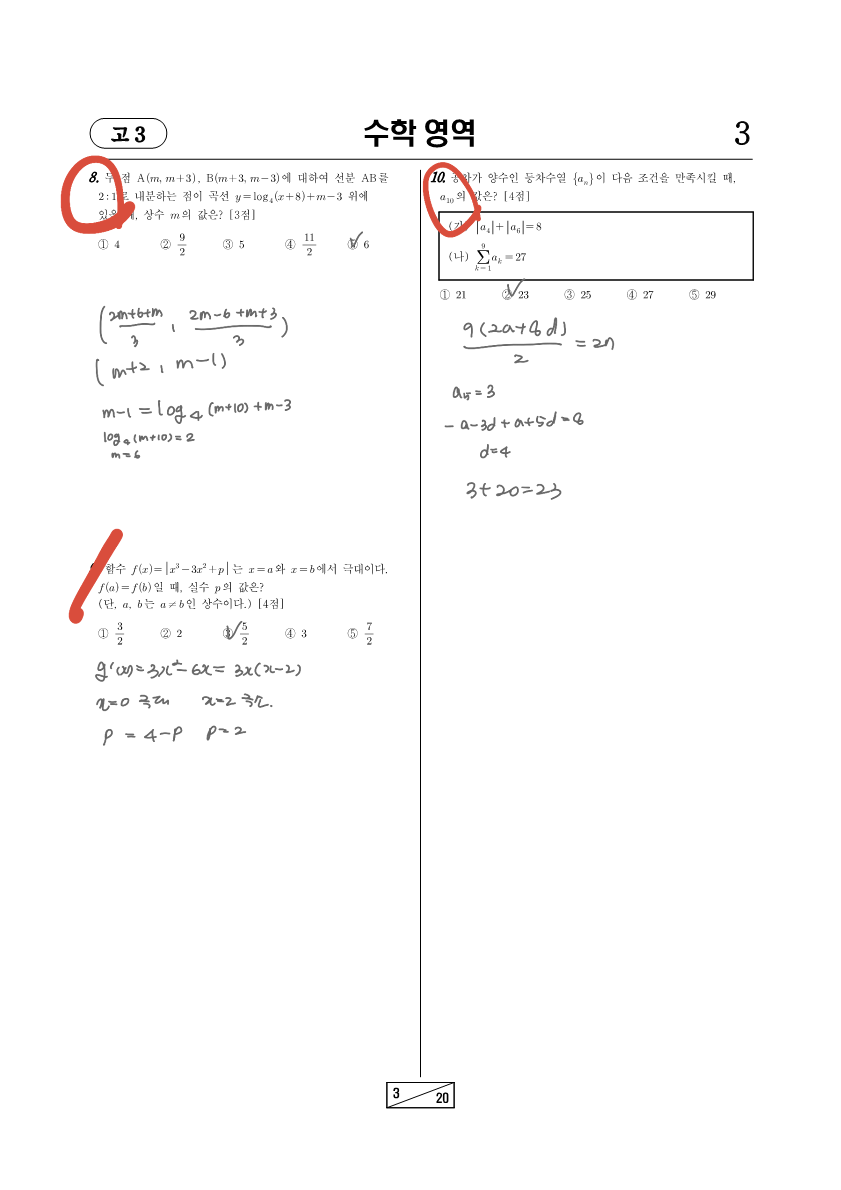 고 3
수학 영역
3
8. 두 점 A(m, m+3), B(m+3, m−3)에 대하여 선분 AB를
2:1로 내분하는 점이 곡선 y=log₄(x+8)+m−3 위에
있을 때, 상수 m의 값은? [3점]
① 4 ② 9/2 ③ 5 ④ 11/2 ⑤ 6
(2m+6+m/3 , 2m-6+m+3/3)
(m+2 , m-1)
m-1 = log₄(m+10)+m-3
log₄(m+10)=2
m=6
함수 f(x)=|x³−3x²+p|는 x=a와 x=b에서 극대이다.
f(a)=f(b)일 때, 실수 p의 값은?
(단, a, b는 a≠b인 상수이다.) [4점]
① 3/2 ② 2 ③ 5/2 ④ 3 ⑤ 7/2
g'(x)=3x²-6x=3x(x-2)
x=0 극대 x=2 극소.
p = 4-p p=2
10. 공차가 양수인 등차수열 {aₙ}이 다음 조건을 만족시킬 때,
a₁₀의 값은? [4점]
(가) |a₄|+|a₆|=8
(나) ∑ₖ₌₁⁹ aₖ=27
① 21 ② 23 ③ 25 ④ 27 ⑤ 29
9(2a+8d)/2 = 27
a₅=3
-a-3d+a+5d=8
d=4
3+20=23
3
20